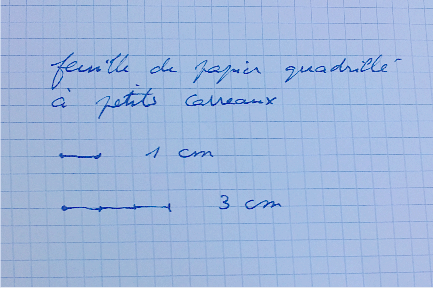 feuille de papier quadrillé
à petits carreaux
1 cm
3 cm